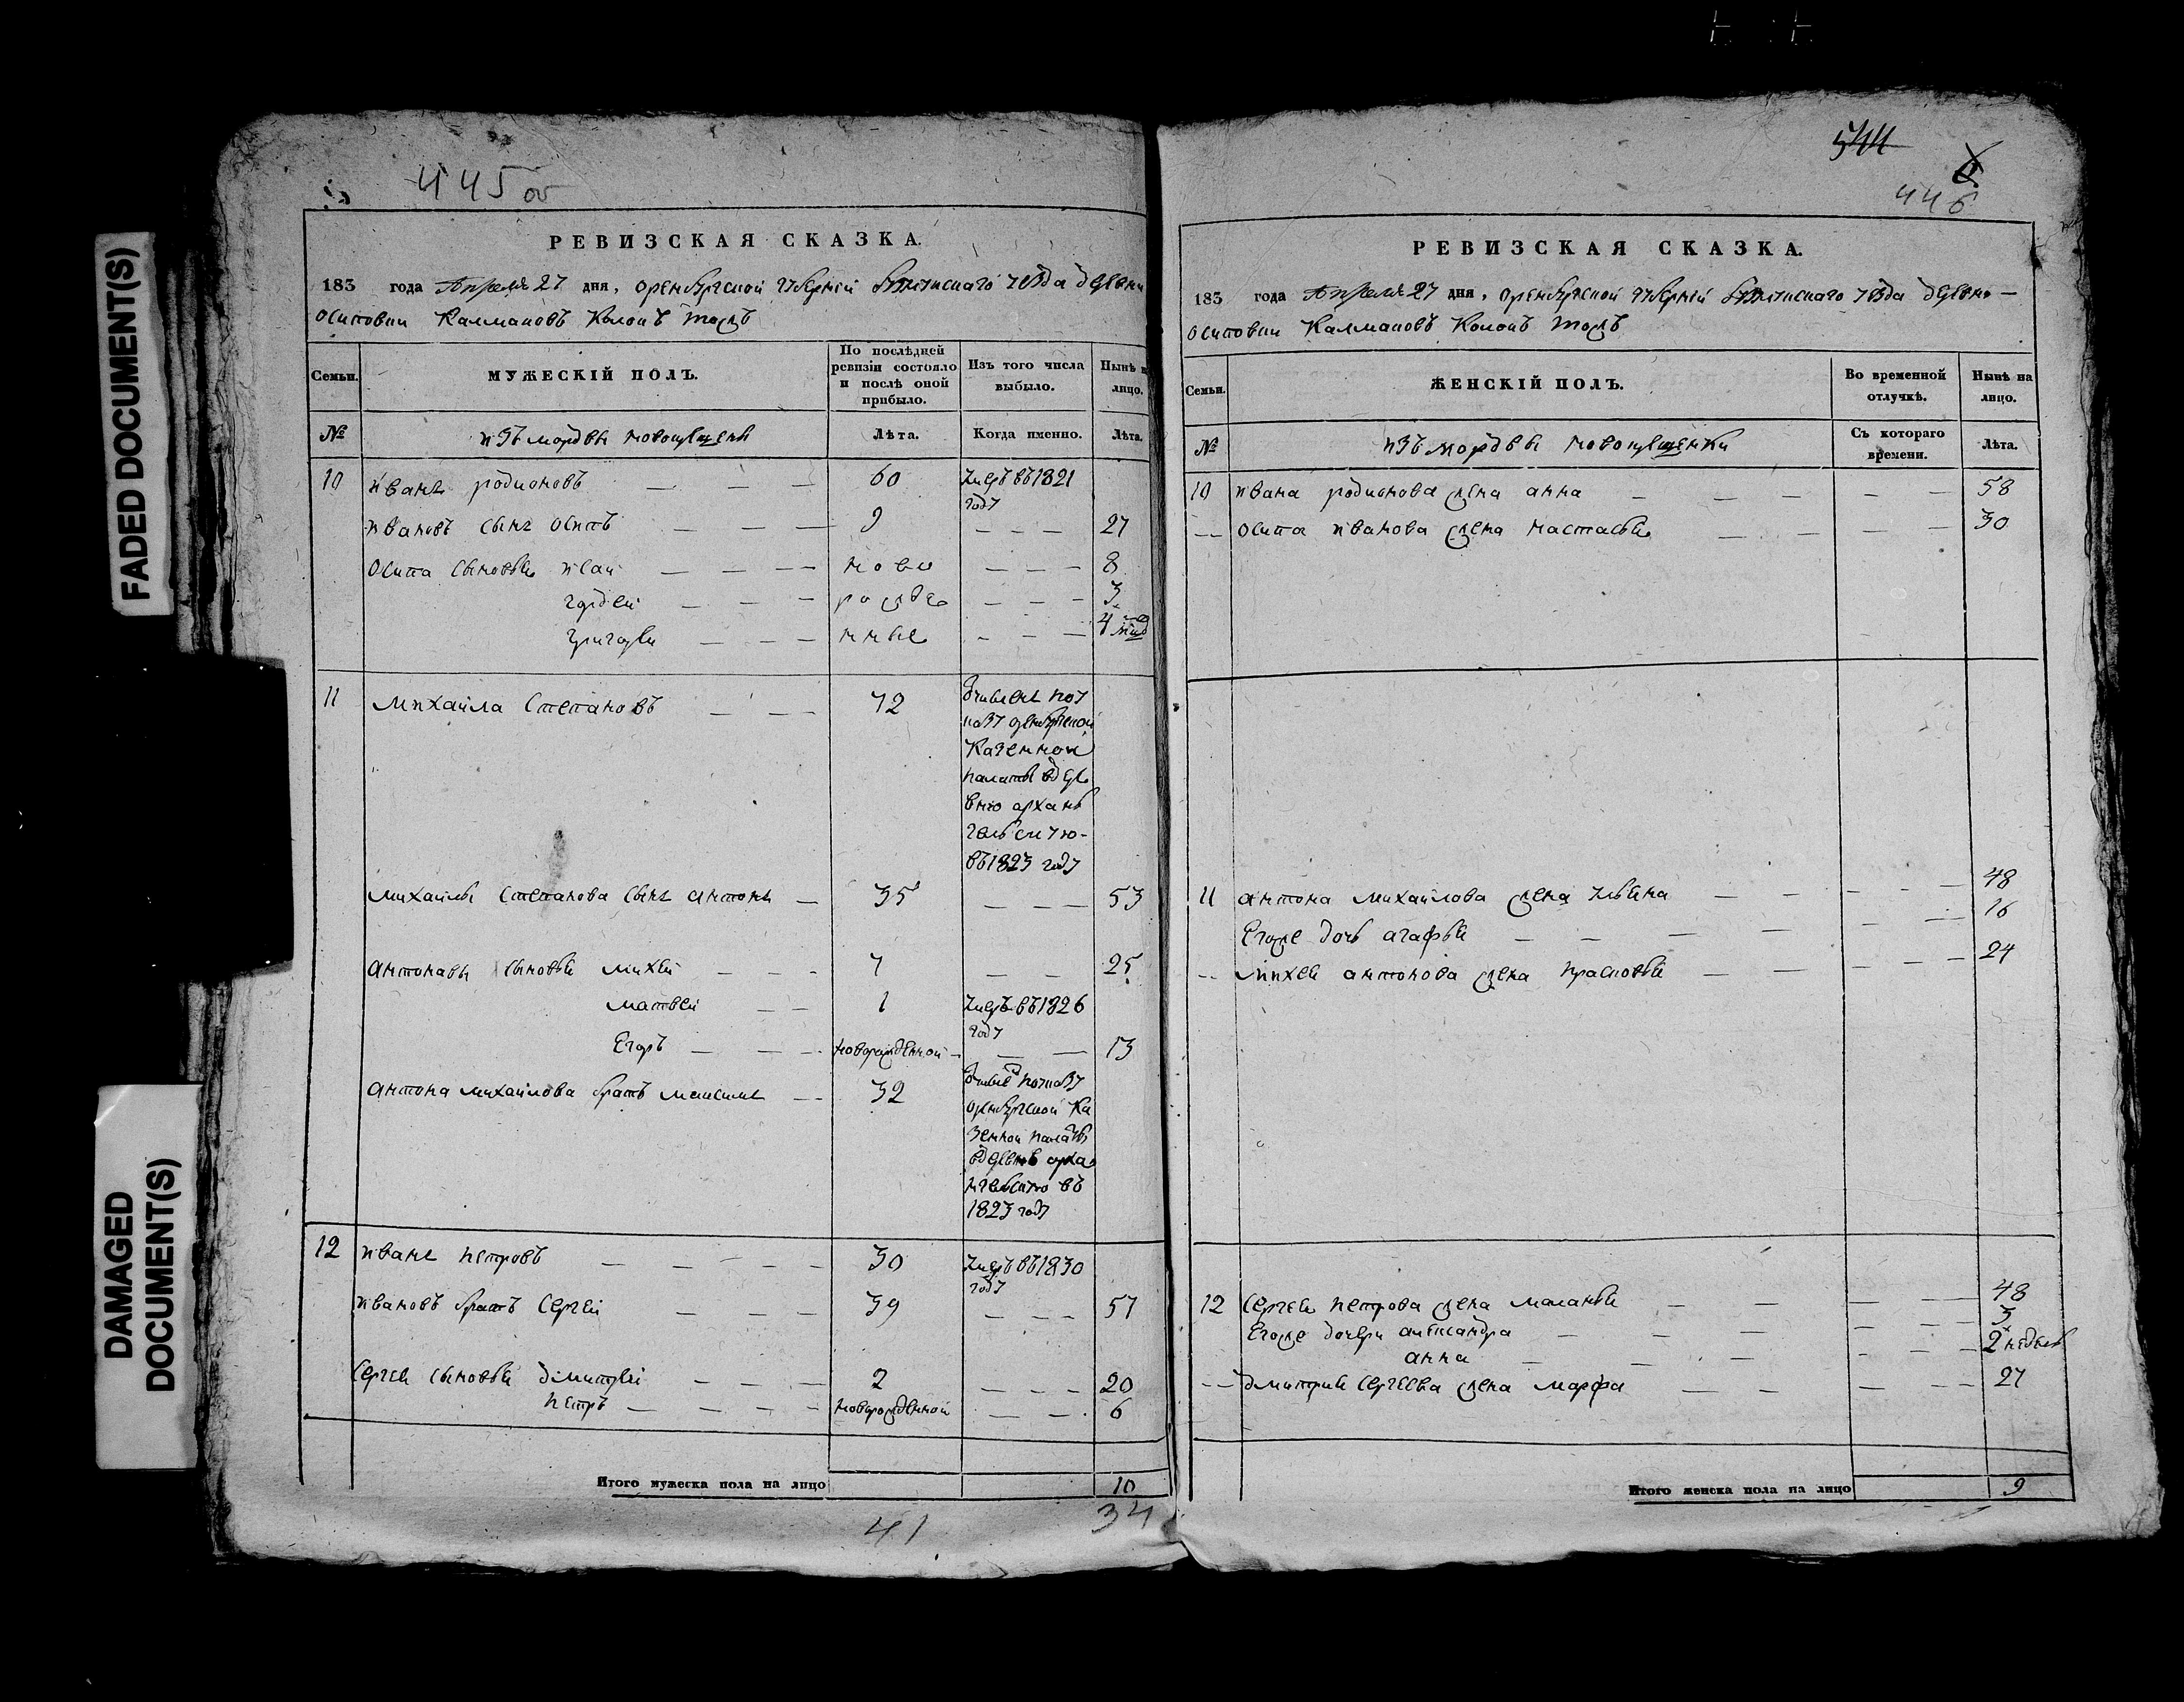 FADED DOCUMENT(S)
DAMAGED DOCUMENT(S)
445 об
РЕВИЗСКАЯ СКАЗКА.
183 года Апреля 27 дня, оренбургской губернїи уѣзда деревни
осиповки Калмановъ Колокъ тожъ
Семьи. МУЖЕСКІЙ ПОЛЪ. По послѣдней ревизіи состояло и послѣ оной прибыло. Изъ того числа выбыло. Нынѣ на лицо.
№ изъ мордвы новокрещены Лѣта. Когда именно. Лѣта.
10 иванъ родионовъ — — — 60 умеръ въ 1821
году
ивановъ сынъ осипъ — — — 9 — — — 27
осипа сыновья исай — — — ново — — — 8
гордей — — — рожде — — — 3
григорей — — — нные — — — 4 мца
11 михаила степановъ — — — 72
казенной
палаты в дере
вню архан
гельскую
въ 1823 году
михаилы степанова сынъ антонъ — 35 — — — 53
антоновы сыновьи михей — — — 7 — — 25
матвей — — 1 умеръ въ 1826
году
Егоръ — — — новорожденной — — — 13
антона михаилова братъ максимъ — — 32
оренбургской ка
зенной палаты
в деревню арха
нгельскую въ
1823 году
12 иванъ петровъ — — — — 50 умеръ въ 1830
году
ивановъ братъ сергей — — — 39 — — — 57
сергея сыновьи дмитрей — — — 2 — — — 20
петръ — — — — новорожденной — — 6
Итого мужеска пола на лицо 10
41 34
544
6
446
РЕВИЗСКАЯ СКАЗКА.
183 года Апреля 27 дня, оренбургской губернїи уѣзда деревни —
осиповки Калмановъ Колокъ тожъ
Семьи. ЖЕНСКІЙ ПОЛЪ. Во временной отлучкѣ. Нынѣ на лицо.
№ изъ мордвы новокрещенки Съ котораго времени. Лѣта.
10 ивана родионова жена анна — — — — — 58
— — осипа иванова жена настасья — — — — 30
11 антона михаилова жена ульяна — — — — 48
Егоже дочь агафья — — — — — — 16
— — михея антонова жена прасковья — — — — — 24
12 сергея петрова жена маланья — — — — 48
Егоже дочери александра — — — — — 3
анна — — — — — — 2 недели
— — дмитрия сергеева жена марфа — — — — 27
Итого женска пола на лицо 9